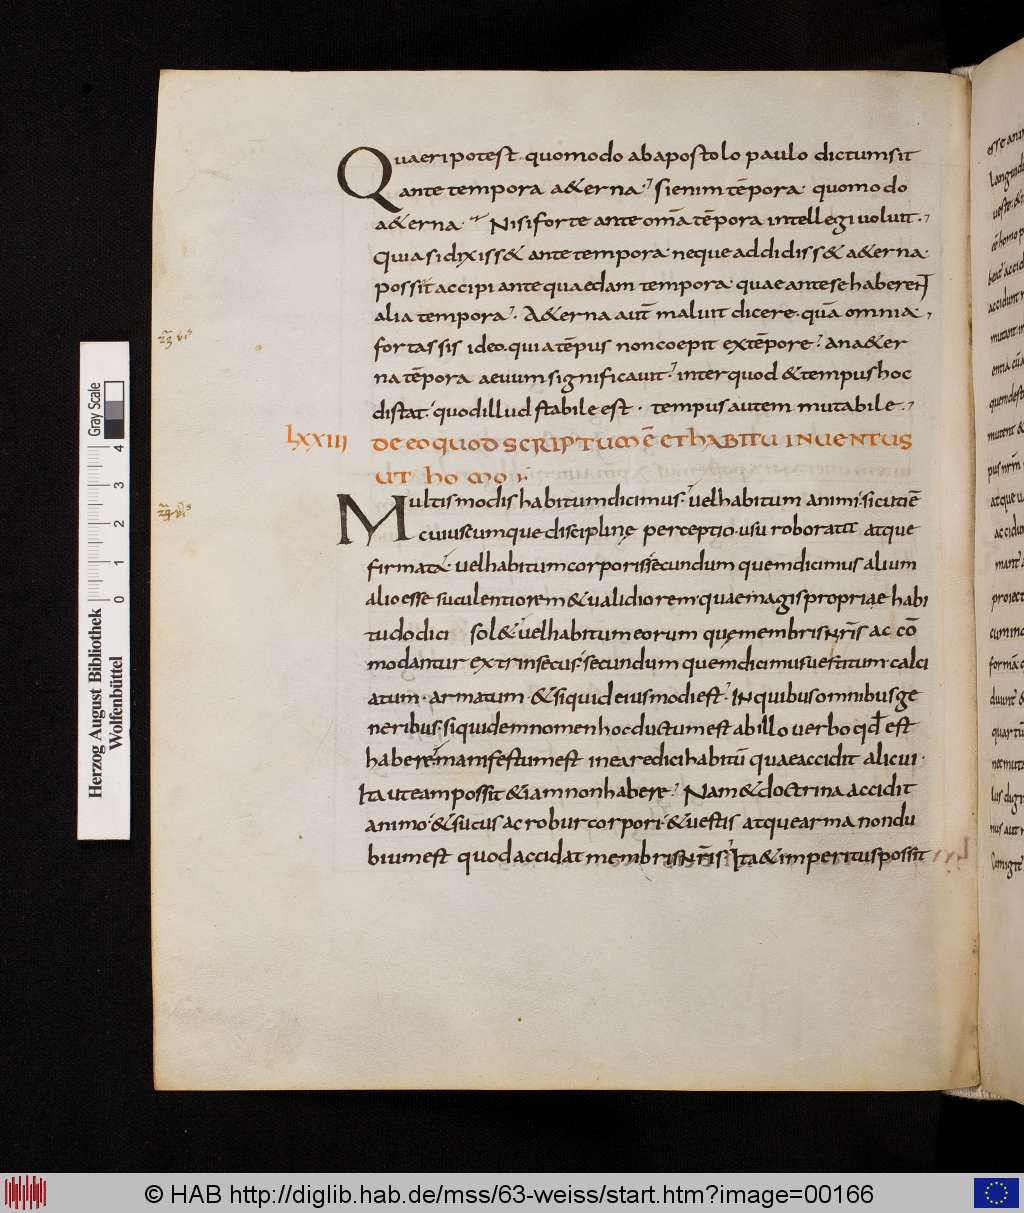 Quaeri potest· quomodo ab apostolo paulo dictum sit
ante tempora a&erna? si enim tēpora· quomodo
a&erna· Nisi forte ante om̄a tēpora intellegi voluit·,
Quia si dixiss& ante tempora neque addidiss& a&erna·
possit accipi ante quaedam tempora· quae ante se haberent
alia tempora· A&erna aut̄ maluit dicere· quā omnia,
fortassis ideo· quia tēpus non coepit ex tēpore· an a&er
na tēpora aevum significavit· inter quod & tempus hoc
distat· quod illud stabile est· tempus autem mutabile·,
LXXIII DE EO QUOD SCRIPTUM Ē ET HABITU INUENTUS
UT HOMO
Multis modis habitum dicimus· vel habitum animi· sicuti ē
cuiuscumque disciplinę perceptio· usu roborata atque
firmata· vel habitum corporis· secundum quem dicimus alium
alio esse suculentiorem & validiorem· quae magis propriae habi
tudo dici sol&· vel habitum eorum quę membris nr̄is acco̅
modantur extrinsecus· secundum quem dicimus vestitum· calci
atum· armatum· & si quid eiusmodi est· IN quibus omnibus ge
neribus· siquidem nomen hoc ductum est ab illo verbo qd̄ est
habere· manifestum est in ea re dici habitū quae accidit alicui·
Ita ut eam possit &iam non habere· Nam & doctrina accidit
animo· & sucus ac robur corpori· & vestis atque arma non du
bium est quod accidat membris nr̄is· Ita & imperitus possit
Gray Scale
4
3
2
1
0
Herzog August Bibliothek
Wolfenbüttel
© HAB http://diglib.hab.de/mss/63-weiss/start.htm?image=00166